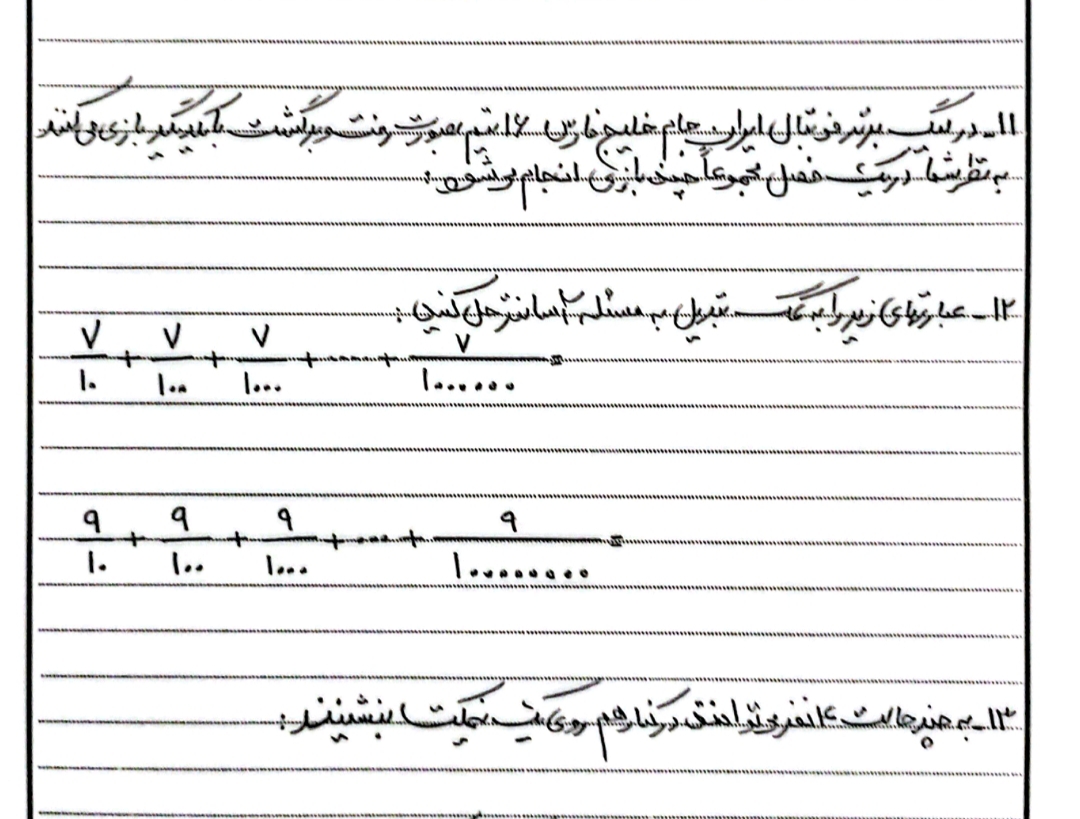 ۱۱_ در لیگ برتر فوتبال ایران جام خلیج فارس ۱۶ تیم بصورت رفت و برگشت با یکدیگر بازی می کنند
به نظر شما در یک فصل مجموعاً چند بازی انجام می شود :
۱۲_ عبارتهای زیر را به کمک تبدیل به مسئله آسانتر حل کنید :
۷/۱۰ + ۷/۱۰۰ + ۷/۱۰۰۰ + ..... + ۷/۱۰۰۰۰۰۰ =
۹/۱۰ + ۹/۱۰۰ + ۹/۱۰۰۰ + .... + ۹/۱۰۰۰۰۰۰۰۰۰ =
۱۳_ به چند حالت ۴ نفر می توانند در کنار هم روی یک نیمکت بنشینند :